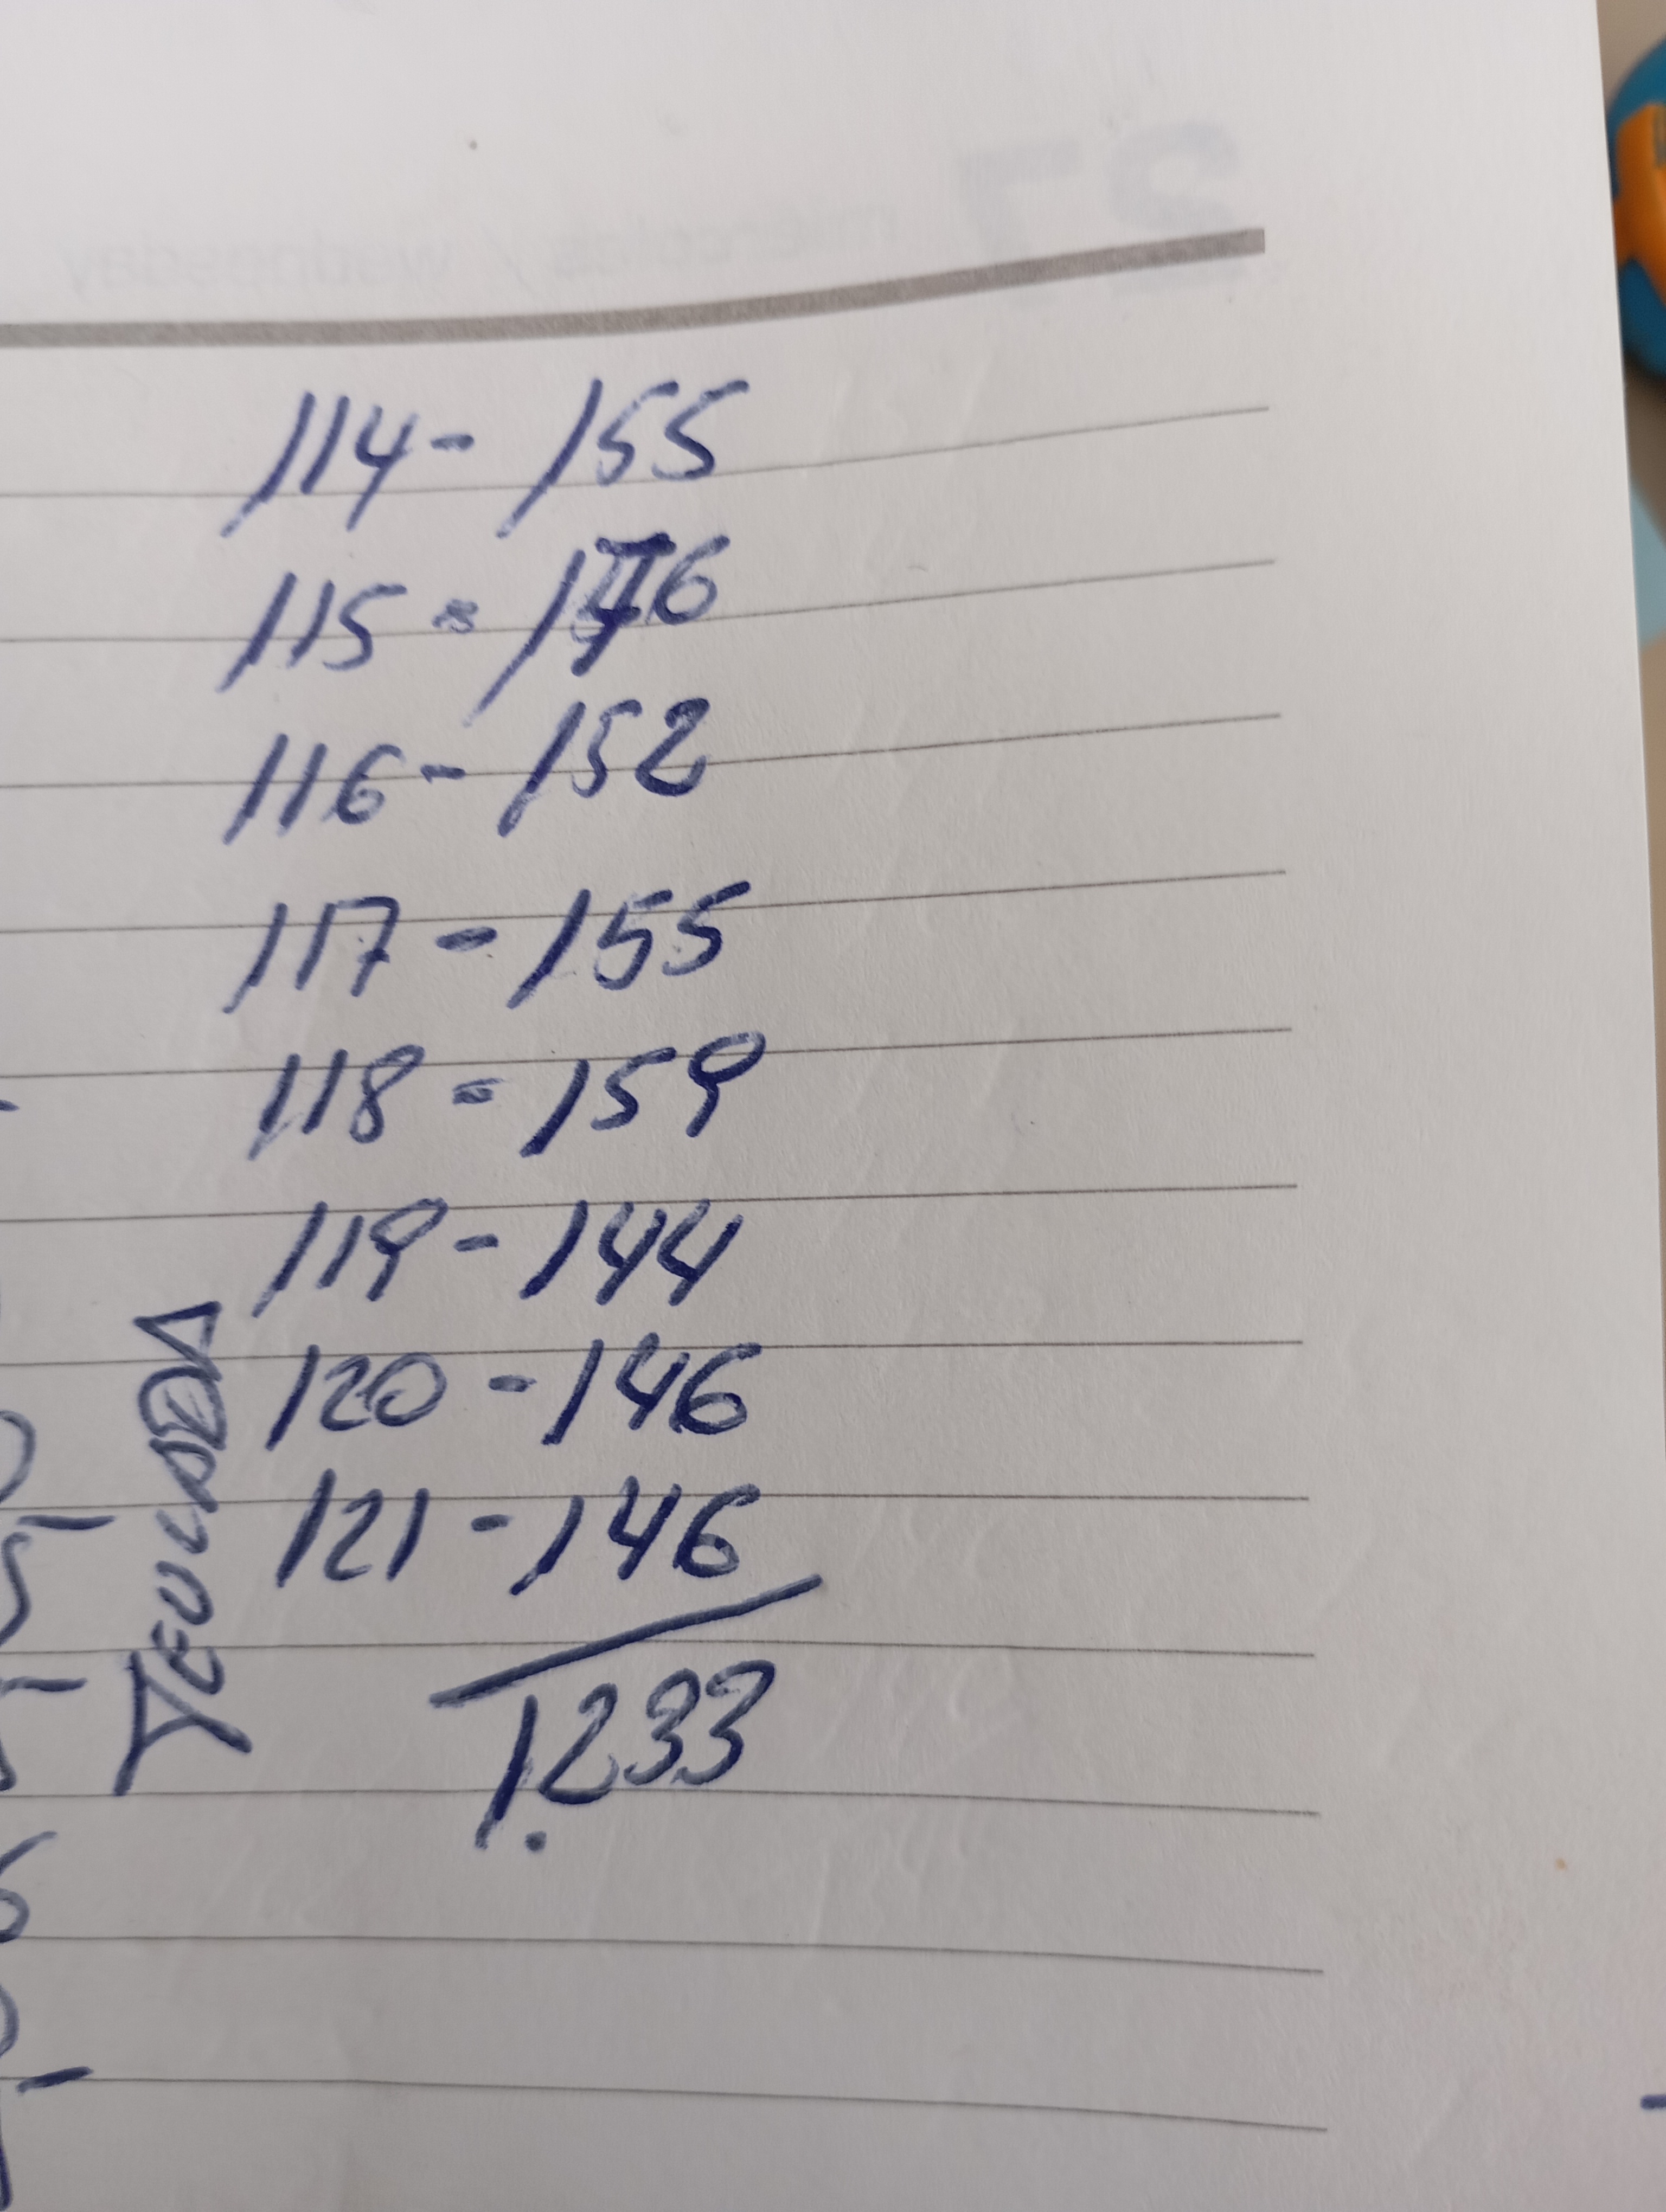 27 miércoles / wednesday
114 - 155
115 = 176
116 - 152
117 - 155
118 = 159
119 - 144
120 - 146
121 - 146
1.233